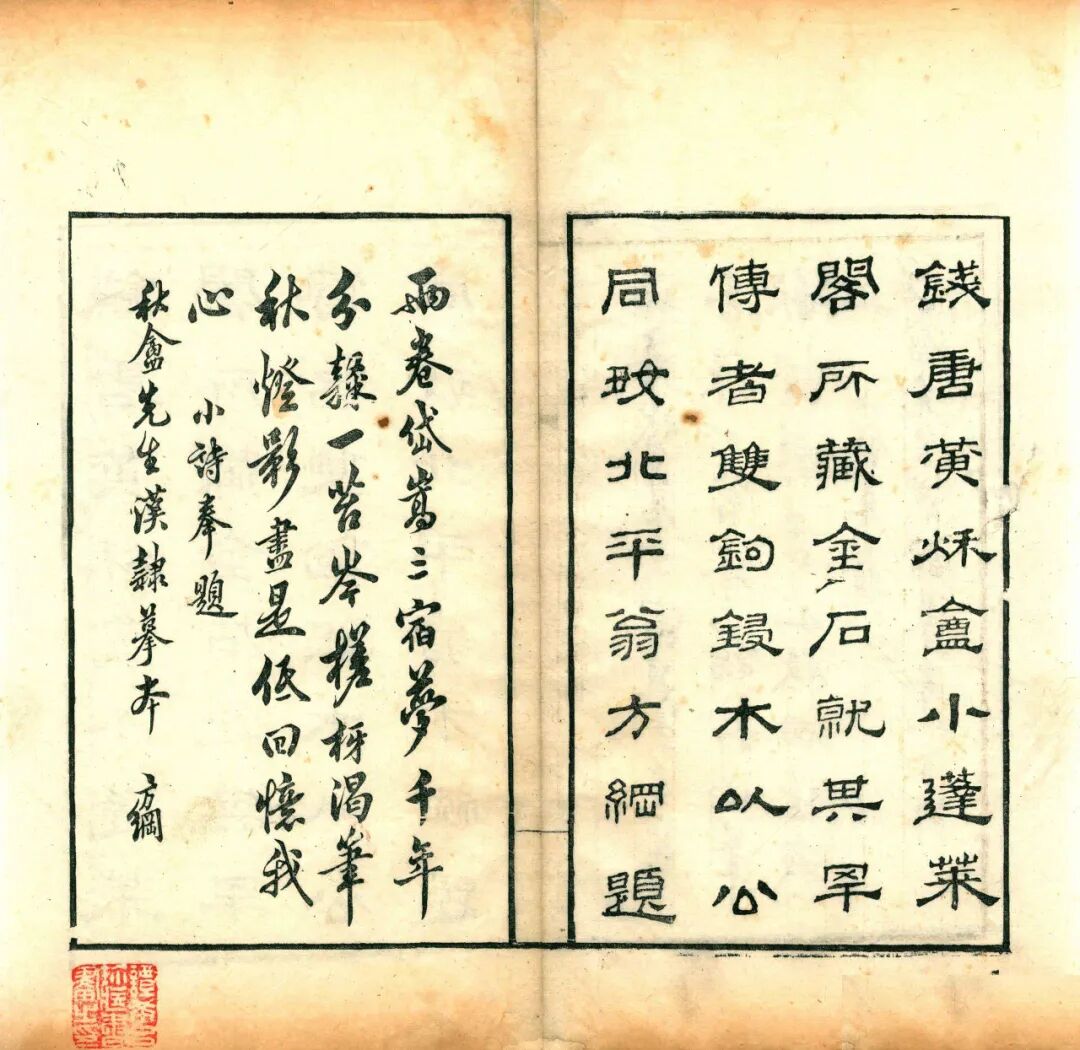 錢唐黃秌盦小蓬萊
閣所藏金石就其罕
傳者雙鉤鋟木以公
同好北平翁方綱題
兩卷岱嵩三宿夢千年
分隸一苔岑槎枒渴筆
秋燈影盡是低回憶我
心 小詩奉題
秋盦先生漢隸摹本 方綱